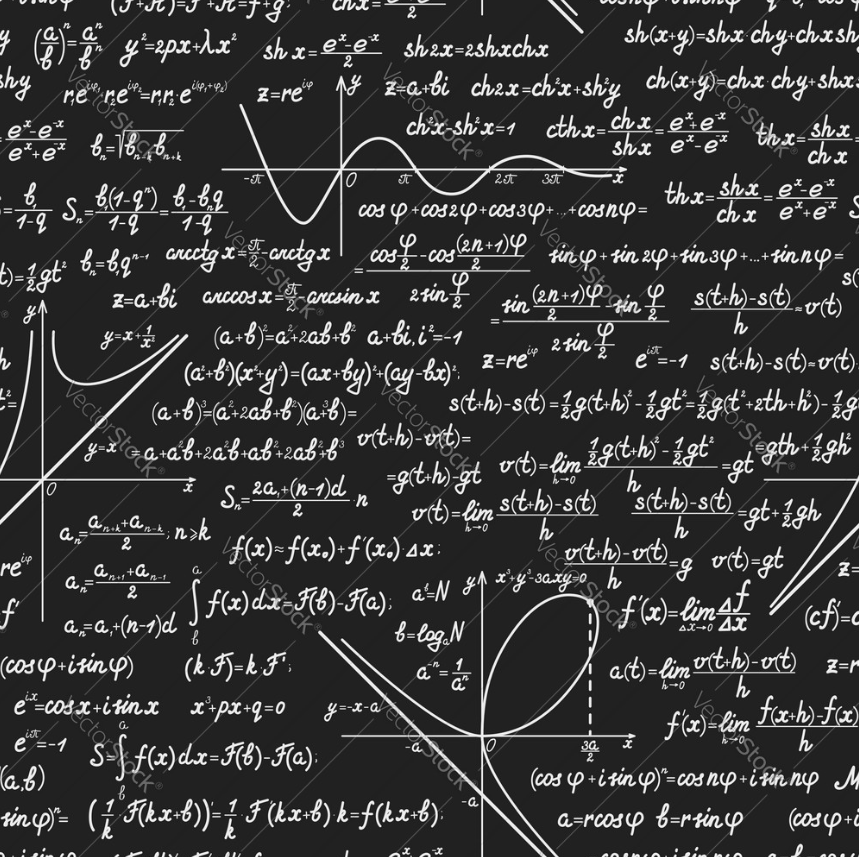 (a/b)ⁿ=aⁿ/bⁿ y²=2px+λx² sh x=(eˣ-e⁻ˣ)/2 sh2x=2shxchx sh(x+y)=shx chy+chx sh
shy r₁e^(iφ₁) r₂e^(iφ₂)=r₁r₂e^(i(φ₁+φ₂)) z=re^(iφ) y z=a+bi ch2x=ch²x+sh²y ch(x+y)=chx chy+shx
(eˣ-e⁻ˣ)/(eˣ+e⁻ˣ) bₙ=√(bₙ₋ₖbₙ₊ₖ) ch²x-sh²x=1 cthx=chx/shx=(eˣ+e⁻ˣ)/(eˣ-e⁻ˣ) thx=shx/chx
-π O π 2π 3π x
=b₁/(1-q) Sₙ=b₁(1-qⁿ)/(1-q)=(b₁-bₙq)/(1-q) cosφ+cos2φ+cos3φ+...+cosnφ= thx=shx/chx=(eˣ-e⁻ˣ)/(eˣ+e⁻ˣ)
(t)=½gt² bₙ=b₁qⁿ⁻¹ arcctgx=π/2-arctgx =(cos(φ/2)-cos((2n+1)φ/2))/(2sin(φ/2)) sinφ+sin2φ+sin3φ+...+sinnφ=
y z=a+bi arccosx=π/2-arcsinx =(sin((2n+1)φ/2)-sin(φ/2))/(2sin(φ/2)) (s(t+h)-s(t))/h≈v(t)
y=x+1/x² (a+b)²=a²+2ab+b² a+bi, i²=-1
(a²+b²)(x²+y²)=(ax+by)²+(ay-bx)²; z=re^(iφ) e^(iπ)=-1 s(t+h)-s(t)≈v(t)
(a+b)³=(a²+2ab+b²)(a+b)= s(t+h)-s(t)=½g(t+h)²-½gt²=½g(t²+2th+h²)-½g
y=x =a+a²b+2a²b+ab²+2ab²+b³ v(t+h)-v(t)= =gth+½gh²
=g(t+h)-gt v(t)=lim h→0 (½g(t+h)²-½gt²)/h=gt
O x Sₙ=(2a₁+(n-1)d)/2·n v(t)=lim h→0 (s(t+h)-s(t))/h (s(t+h)-s(t))/h=gt+½gh
aₙ=(aₙ₊ₖ+aₙ₋ₖ)/2; n⩾k f(x)≈f(x₀)+f'(x₀)·Δx; (v(t+h)-v(t))/h=g v(t)=gt z=
re^(iφ) aₙ=(aₙ₊₁+aₙ₋₁)/2 ∫ₐᵇ f(x)dx=F(b)-F(a); aᵗ=N y x³+y³-3axy=0
f' aₙ=a₁+(n-1)d b=logₐN f'(x)=lim Δx→0 Δf/Δx (cf)'=c
(cosφ+isinφ) (kF)'=k·F'; a⁻ⁿ=1/aⁿ a(t)=lim h→0 (v(t+h)-v(t))/h z=r
e^(ix)=cosx+isinx x³+px+q=0 y=-x-a f'(x)=lim h→0 (f(x+h)-f(x))/h
e^(iπ)=-1 S=∫ₐᵇ f(x)dx=F(b)-F(a); -a O 3a/2 x
(a,b) (cosφ+isinφ)ⁿ=cosnφ+isinnφ
sinφ)ⁿ= (1/k F(kx+b))'=1/k F'(kx+b)·k=f(kx+b); -a a=rcosφ b=rsinφ (cosφ+i
VectorStock®